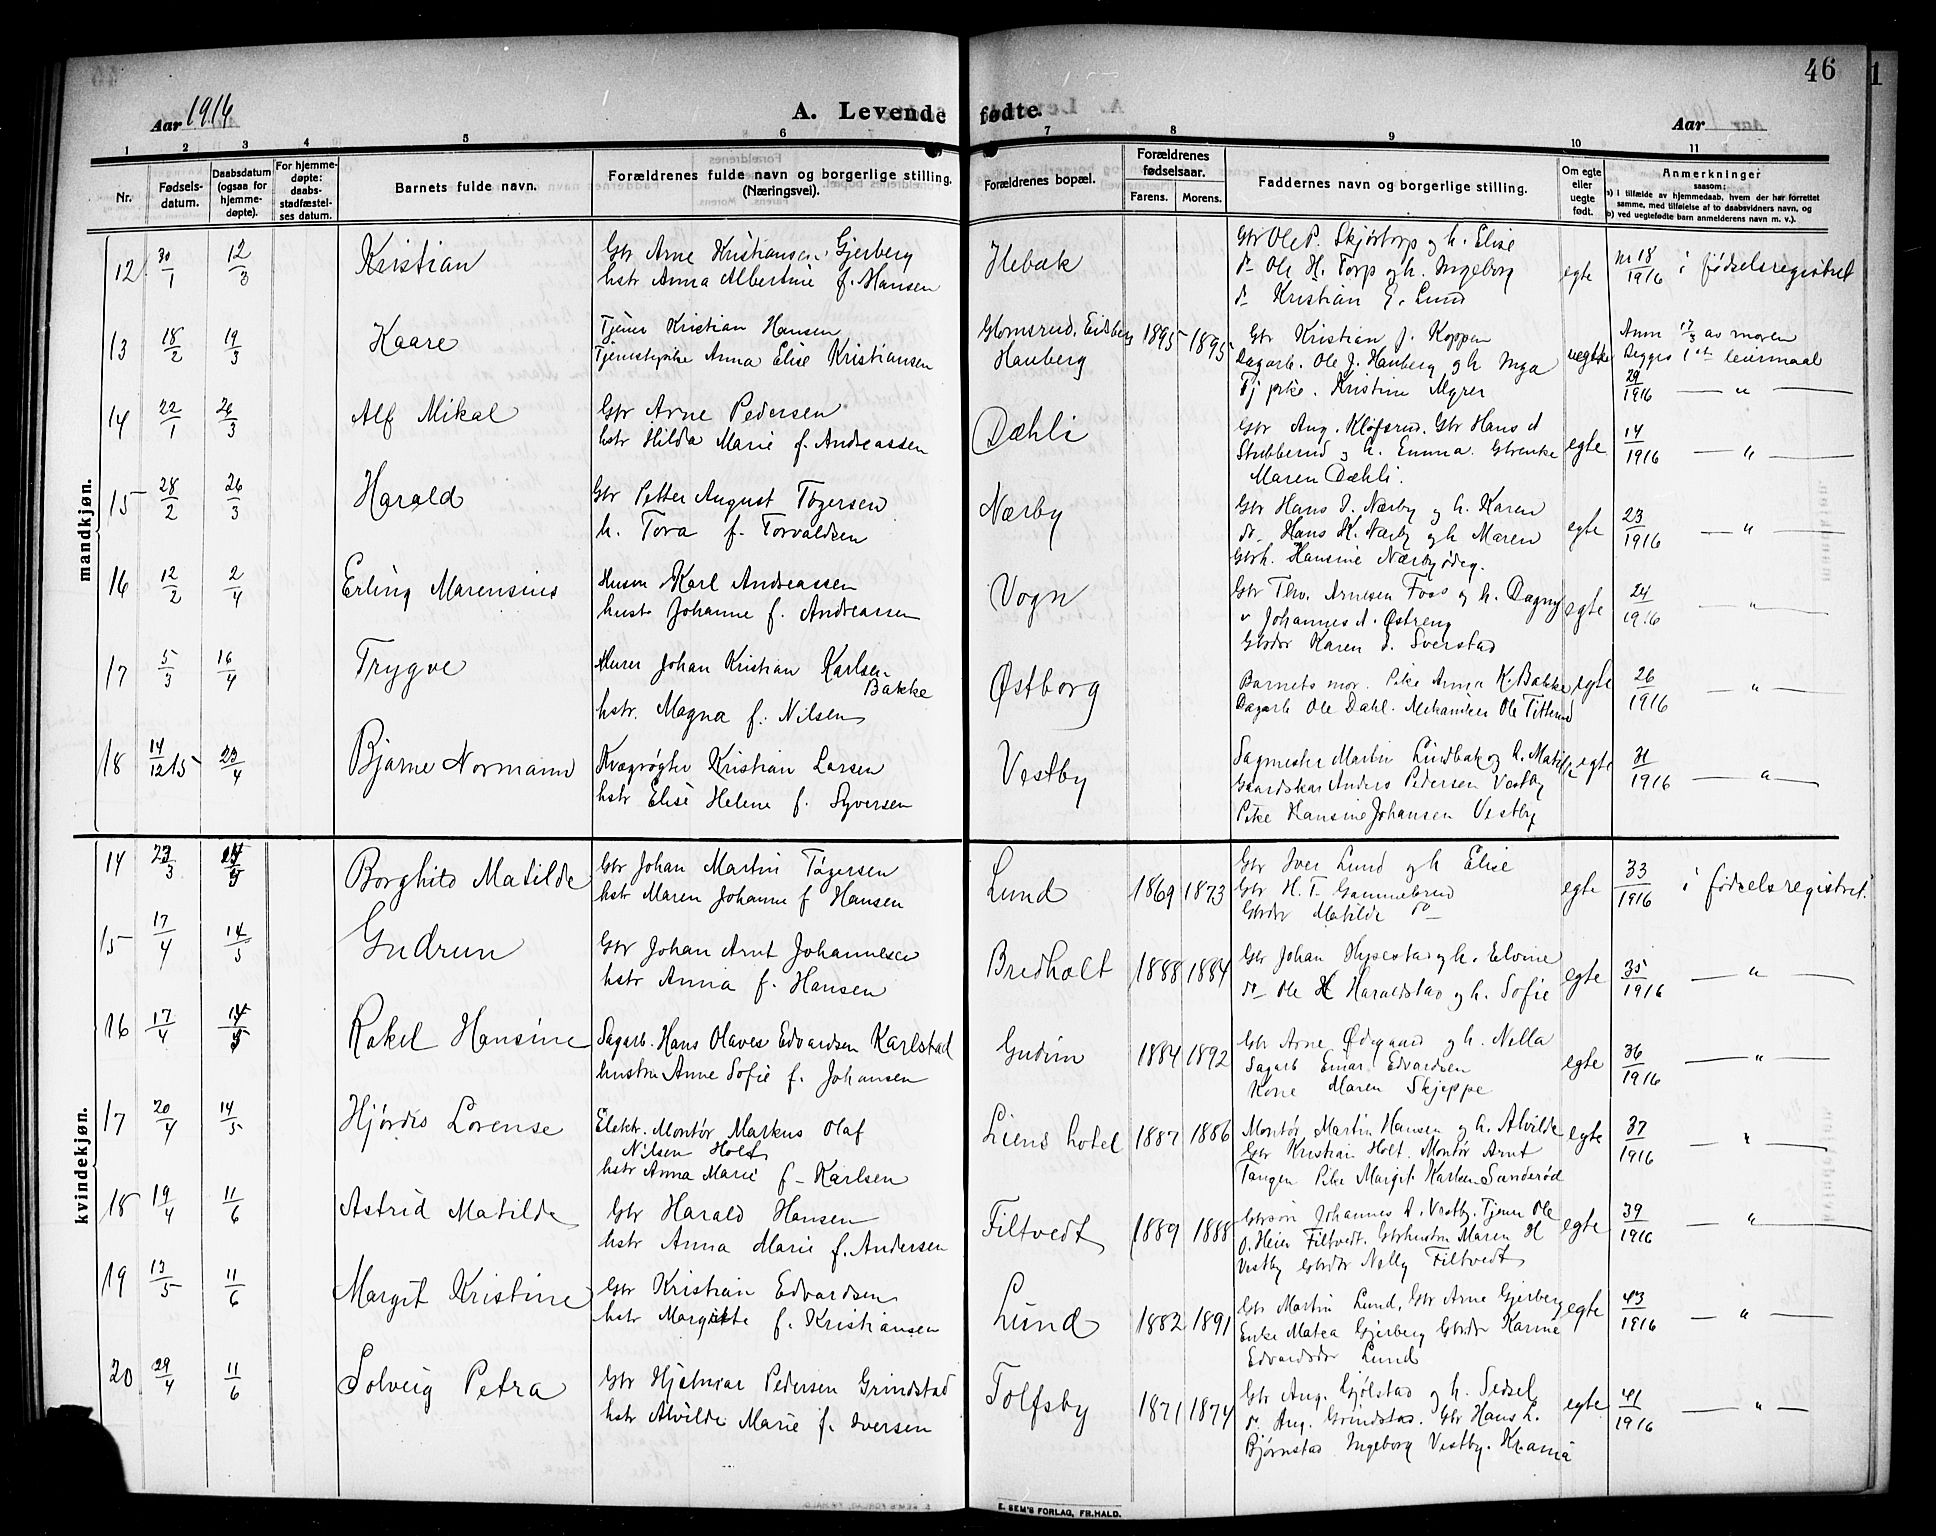 46
1
Aar 1916
A. Levende fødte.
Aar
1 2 3 4 5 6 7 8 9 10 11
Nr.
Fødsels-
datum.
Daabsdatum
(ogsaa for
hjemme-
døpte).
For hjemme-
døpte:
daabs-
stadfæstel-
ses datum.
Barnets fulde navn.
Forældrenes fulde navn og borgerlige stilling.
(Næringsvei).
Forældrenes bopæl.
Forældrenes
fødselsaar.
Farens. Morens.
Faddernes navn og borgerlige stilling.
Om egte
eller
uegte
født.
Anmerkninger
saasom:
a) i tilfælde av hjemmedaab, hvem der har forrettet
samme, med tilføielse af to daabsvidners navn, og
b) ved uegtefødte barn anmelderens navn m. v.).
mandkjøn.
12 30/1 12/3 Kristian
Gbr Arne Kristiansen Gjerberg
hstr Anna Albertine f. Hansen
Hebæk
Gbr Ole P. Skjørtorp og h. Elise
do Ole H. Torp og h. Ingeborg
do Kristian E. Lund
egte
nr 18/1916 i fødselsregistret
13 18/2 19/3 Kaare
Tjener Kristian Hansen
Tjenestepike Anna Elise Kristiansen
Glomsrud, Eidsberg
Hauberg
1895 1895
Gbr Kristian J. Koppen
Dagarb. Ole J. Hauberg og h Inga
Tj pike. Kristine Myrer
uegte
Anm 17/3 av moren
Begges 1ste leiermaal
29/1916 — " —
14 22/1 26/3 Alf Mikal
Gbr Arne Pedersen
hstr Hilda Marie f. Andreassen
Dæhli
Gbr Aug. Kløfsrud. Gbr Hans A
Stubberud og h. Emma. Gbrenke
Maren Dæhli.
egte
14/1916 — " —
15 28/2 26/3 Harald
Gbr Petter August Tøgersen
h. Tora f. Torvaldsen
Nærby
Gbr Hans J. Nærby og h. Karen
do Hans K. Nærby og h Maren
Gbrh. Hansine Nærbyødeg.
egte
23/1916 — " —
16 12/2 2/4 Erling Marensius
Husm Karl Andreassen
hust Johanne f. Andreassen
Vogn
Gbr Thv. Arnesen Foss og h. Dagny
v Johannes A. Østreng
Gbrdtr Karen J. Sverstad
egte
24/1916 — " —
17 5/3 16/4 Trygve
Murer Johan Kristian Karlsen
Bakke
hstr. Magna f. Nilsen
Østborg
Barnets mor. Pike Anna K. Bakke
Dagarb Ole Dahl. Mekaniker Ole Titterud
egte
26/1916 — " —
18 14/12 15 23/4 Bjarne Normann
Kvægrøgter Kristian Larsen
hstr Elise Helene f. Syversen
Vestby
Sagmester Martin Lindbæk og h. Matilde
Gaardskar Anders Pedersen Vestby
Pike Hansine Johansen Vestby
egte
31/1916 — " —
kvindekjøn.
14 23/3 Borghild Matilde
Gbr Johan Martin Tøgersen
hstr Maren Johanne f Hansen
Lund
1869 1873
Gbr Iver Lund og h Elise
Gbr H. T. Gammelsrud
Gbrdtr Matilde do
egte
33/1916 i fødselsregistret.
15 17/4 14/5 Gudrun
Gbr Johan Arnt Johannesen
hstr Anna f. Hansen
Bredholt
1888 1884
Gbr Johan og h. Elvine
do Ole H Haraldstad og h. Sofie
egte
35/1916 — " —
16 17/4 14/5 Rakel Hansine
Sagarb. Hans Olaves Edvardsen Karlstad
hustru Anne Sofie f. Johansen
Gudim
1884 1892
Gbr Arne Ødegaard og h. Nella
Sagarb Einar Edvardsen
Kone Maren Skjeppe
egte
36/1916 — " —
17 20/4 14/5 Hjørdis Lorense
Elektr. Montør Markus Olaf
Nilsen Holt
hstr Anna Marie f — Karlsen
Liens hotel
1887 1886
Montør Martin Hansen og h. Alvilde
Gbr Kristian Holt. Montør Arnt
Tangen Pike Margit Karlsen Sunderød
egte
37/1916 — " —
18 19/4 11/6 Astrid Matilde
Gbr Harald Hansen
hstr Anna Marie f. Andersen
Filtvedt
1889 1888
Gbrsøn Johannes A. Vestby. Tjener Ole
O. Heier Filtvedt. Gbrhustru Maren H
Vestby Gbrdtr Nelly Filtvedt
egte
39/1916 — " —
19 13/5 11/6 Margit Kristine
Gbr Kristian Edvardsen
hstr Margitte f. Kristiansen
Lund
1882 1891
Gbr Martin Lund, Gbr Arne Gjerberg
Enke Matea Gjerberg Gbrdtr Karine
Edvardsdtr Lund
egte
43/1916 — " —
20 29/4 11/6 Solveig Petra
Gbr Hjalmar Pedersen Grindstad
hstr Alvilde Marie f. Iversen
Tolfsby
1871 1874
Gbr Aug. Gjølstad og h. Sedsel
do Aug. Grindstad. Gbr Hans L.
Bjørnstad Ingeborg Vestby. Kr.ania
egte
41/1916 — " —
E. SEM'S FORLAG, FR.HALD.